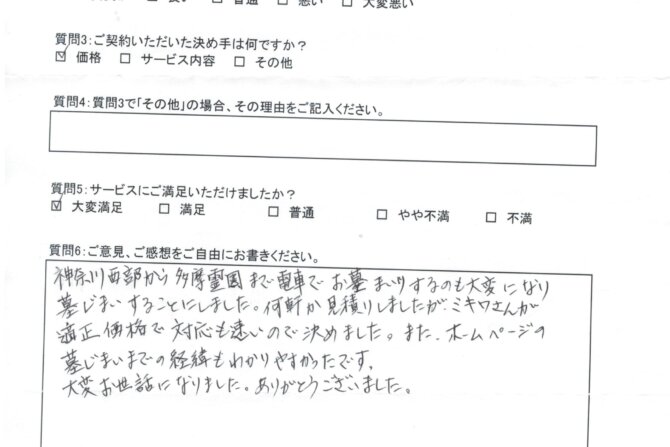 □ 普通 □ 悪い □ 大変悪い
質問3:ご契約いただいた決め手は何ですか?
☑ 価格 □ サービス内容 □ その他
質問4:質問3で「その他」の場合、その理由をご記入ください。
質問5:サービスにご満足いただけましたか?
☑ 大変満足 □ 満足 □ 普通 □ やや不満 □ 不満
質問6:ご意見、ご感想をご自由にお書きください。
神奈川西部から多摩霊園まで電車でお墓まいりするのも大変になり
墓じまいすることにしました。何軒か見積りしましたが、ミキワさんが
適正価格で対応も速いので決めました。また、ホームページの
墓じまいまでの経緯もわかりやすかったです。
大変お世話になりました。ありがとうございました。